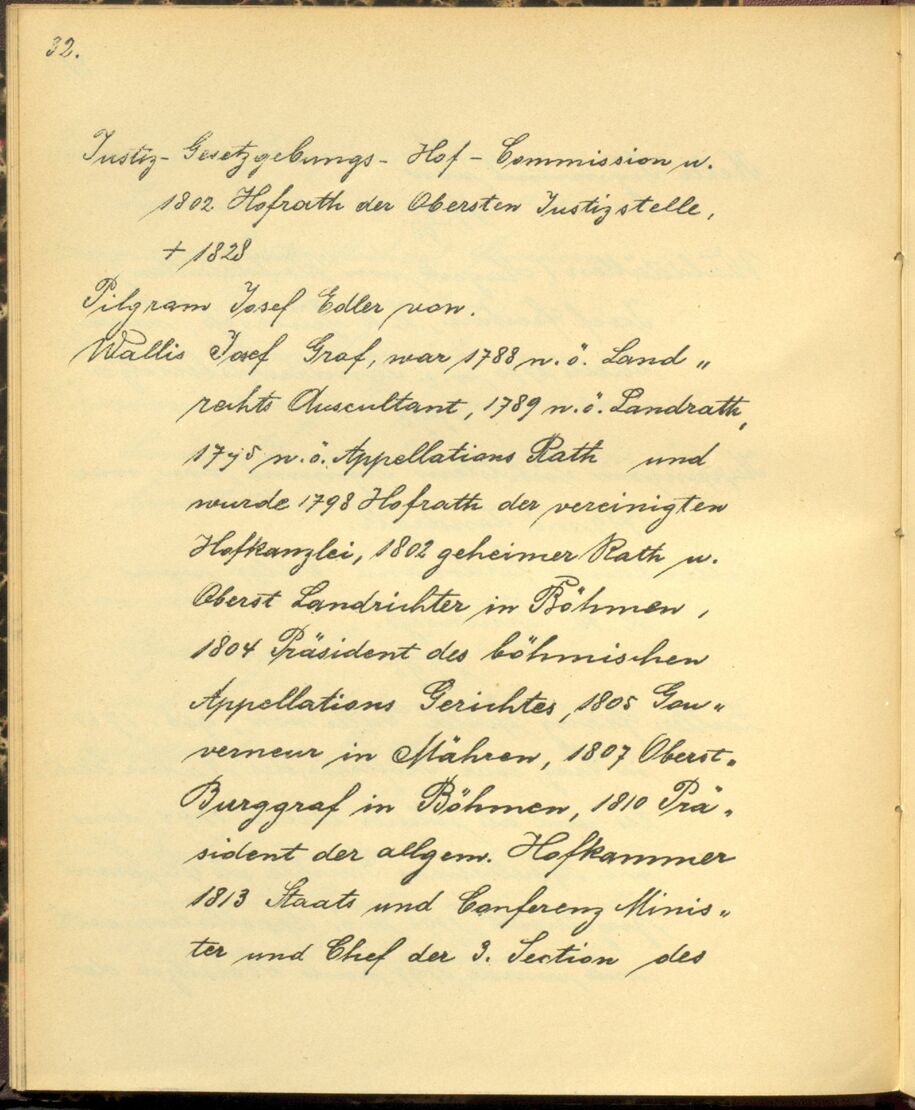 32.
Justiz- Gesetzgebungs- Hof- Commission u.
1802 Hofrath der Obersten Justizstelle,
+ 1828
Pilgram Josef Edler von.
Wallis Josef Graf, war 1788 n. ö. Land„
rechts Auscultant, 1789 n. ö. Landrath,
1795 n. ö. Appellations Rath und
wurde 1798 Hofrath der vereinigten
Hofkanzlei, 1802 geheimer Rath u.
Oberst Landrichter in Böhmen,
1804 Präsident des böhmischen
Appellations Gerichtes, 1805 Gou„
verneur in Mähren, 1807 Oberst„
Burggraf in Böhmen, 1810 Prä„
sident der allgem. Hofkammer
1813 Staats und Conferenz Minis„
ter und Chef der 3. Section des